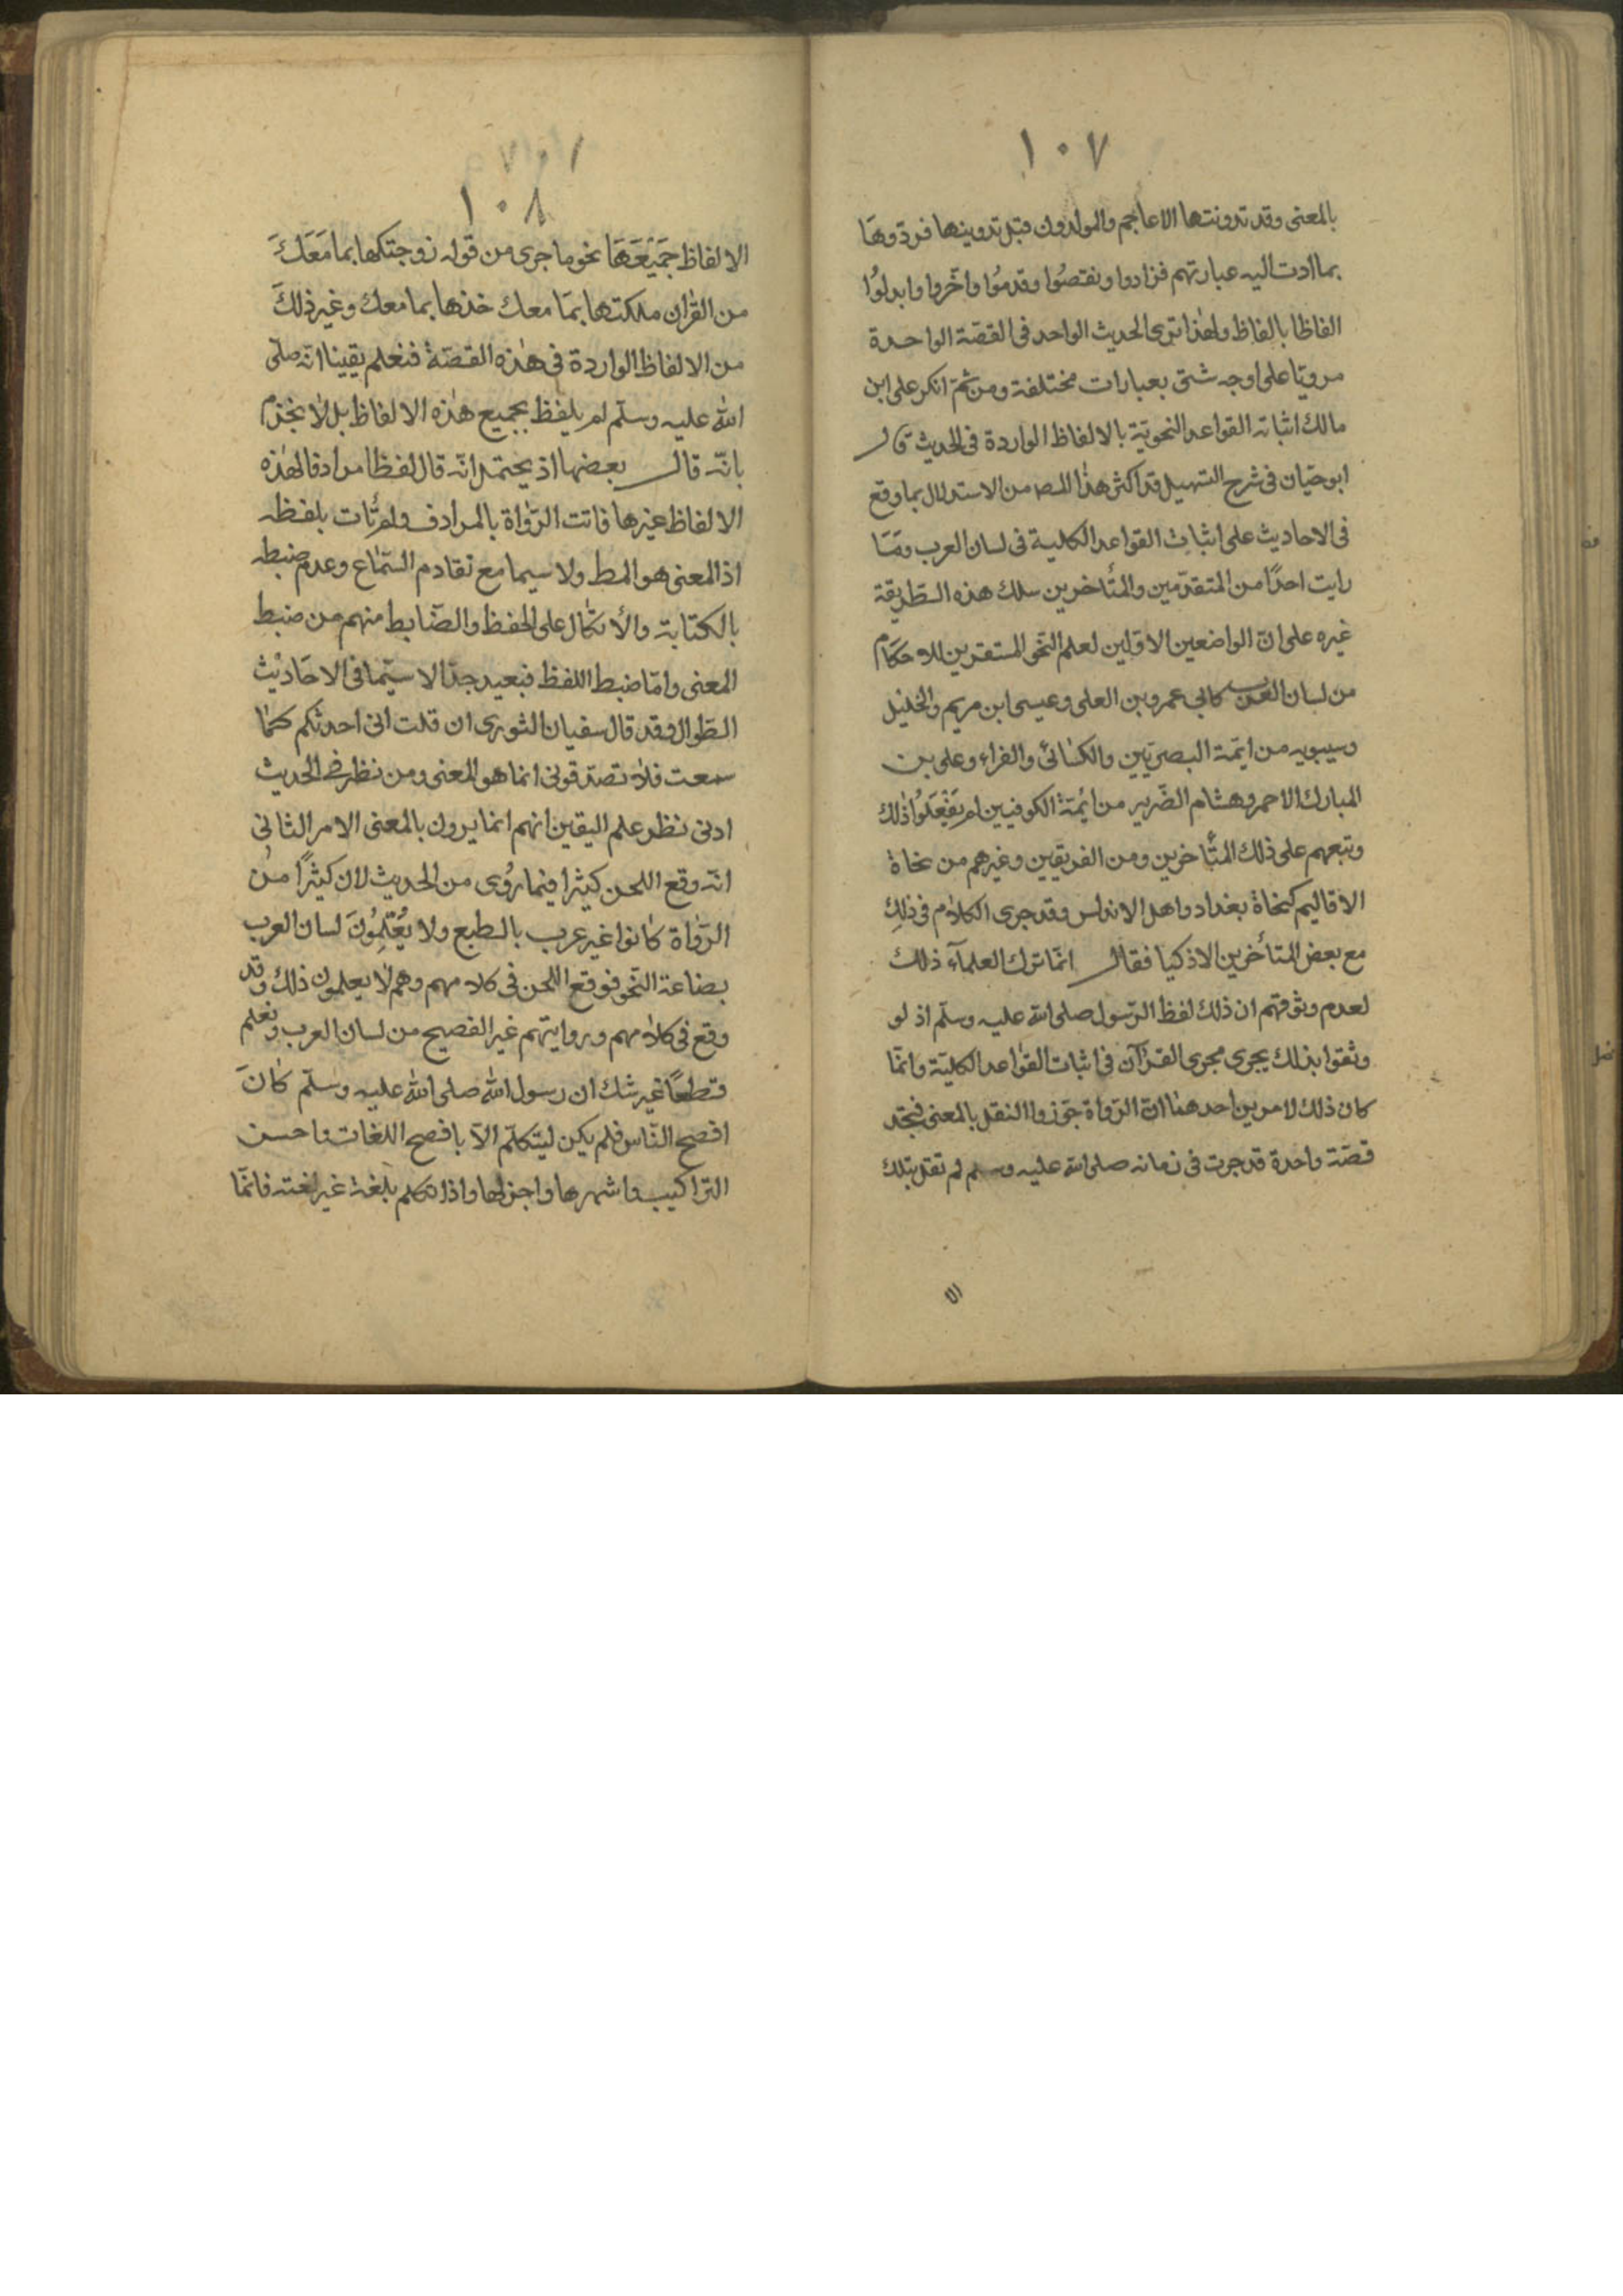 ١٠٧
بالمعنى وقد تدونتها الاعاجم والمولدون قبل تدوينها فردوها
بما ادت اليه عبارتهم فزادوا ونقصُوا وقدمُوا واخّروا وابدلوُا
الفاظا بالفاظ ولهٰذا ترى الحديث الواحد فى القصّة الواحدة
مرويّا على اوجه شتى بعبارات مختلفة ومن ثمّ انكر على ابن
مالك اثباته القواعد النحويّة بالالفاظ الواردة فى الحديث قال
ابو حيّان فى شرح التسهيل قد اكثر هذا المصـ من الاستدلال بما وقع
فى الاحاديث على اثبات القواعد الكلية فى لسان العرب ومَا
رايت احدًا من المتقدّمين والمتأخرين سلك هذه الطّريقة
غيره على انّ الواضعين الاوّلين لعلم النّحو المستقرين للاحكام
من لسان العرب كابى عمرو بن العلى وعيسى ابن مريم والخليل
وسيبويه من ايّمة البصريّين والكسائى والفراء وعلى بن
المبارك الاحمر وهشام الضّرير من ائمّة الكوفيين لم يَفْعَلُوا ذٰلك
وتبعهم على ذلك المتأخرين ومن الفريقين وغيرهم من نحاة
الاقاليم كنحاة بغداد واهل الاندلس وقد جرى الكلام فى ذلِك
مع بعض المتأخرين الاذكيا فقال انّما ترك العلمآء ذلك
لعدم وثوقهم ان ذلك لفظ الرّسول صلى الله عليه وسلّم اذ لو
وثقوا بذلك يجرى مجرى القرآن فى اثبات القواعد الكليّة وانمّا
كان ذلك لامرين احدهما انّ الرّواة جوّزوا النقل بالمعنى فنجد
قصّة واحدة قد جرت فى زمانه صلى الله عليه وسلم لم تقل بتلك
١٠٧
١٠٨
الالفاظ جَمَيْعَهَا نحو ما جرى من قوله زوجتكها بما مَعَكَ
من القرٰان ملكتها بمَا معك خذها بما معك وغير ذلكَ
من الالفاظ الواردة فى هٰذه القصّة فنعلم يقينا انّه صلّى
الله عليه وسلّم لم يلفظ بجميع هٰذه الالفاظ بل لا نجزم
بانّه قال بعضها اذ يحتمل انّه قال لفظا مرادفا لهٰذه
الالفاظ غيرها فاتت الرّواة بالمرادف ولم تأت بلفظه
اذ المعنى هو المط ولا سيما مع تقادم السّماع وعدم ضبطه
بالكتابة والأتكال على الحفظ والضّابط منهم من ضبط
المعنى وامّا ضبط اللفظ فبعيد جدّا لا سيّما فى الاحَاديْث
الطّوال وقد قال سفيان الثورى ان قلت انى احدثكم كمٰا
سمعت فلا تصدّقونى انما هو المعنى ومن نظر فى الحديث
ادنى نظر علم اليقين انهم انما يروون بالمعنى الامر الثانى
انّه وقع اللحن كيثرا فيما رُوى من الحديث لان كيثرًا من
الرّواة كانوا غير عرب بالطبع ولا يُعْلِمُونَ لسان العرب
بصناعة النّحو فوقع اللّحن فى كلامهم وهم لا يعلمون ذلك وقد
وقع فى كلامهم وروايتهم غير الفصيح من لسان العرب ونعلم
قطعًا غير شك ان رسول الله صلى الله عليه وسلّم كانَ
افصح النّاس فلم يكن ليتكلّم الّا بافصح اللغات واحسن
التراكيب واشهرها واجزلها واذا تكلم بلغة غير لغته فانمّا